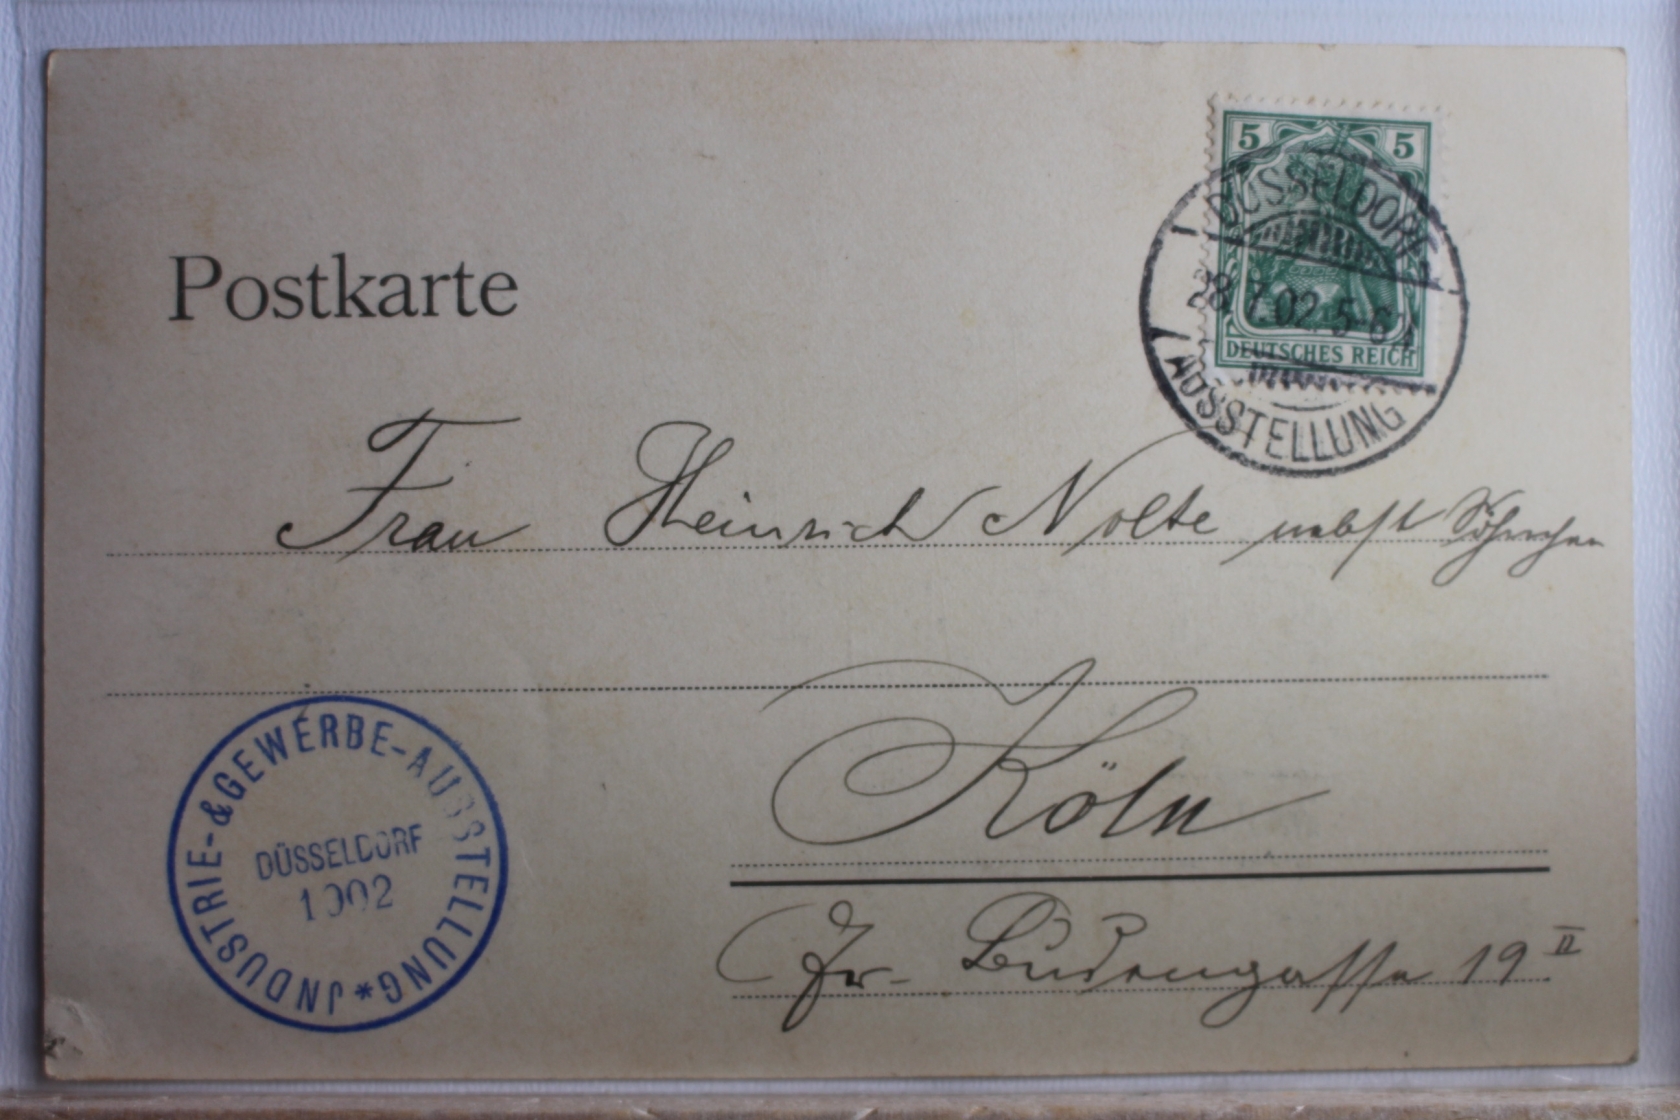 5 5
DEUTSCHES REICH
DÜSSELDORF
28.7.02 5-6N
AUSSTELLUNG
Postkarte
Frau Heinrich Nolte nebst Söhnchen
Köln
Gr. Budengasse 19 II
JNDUSTRIE-&GEWERBE-AUSSTELLUNG*
DÜSSELDORF
1902